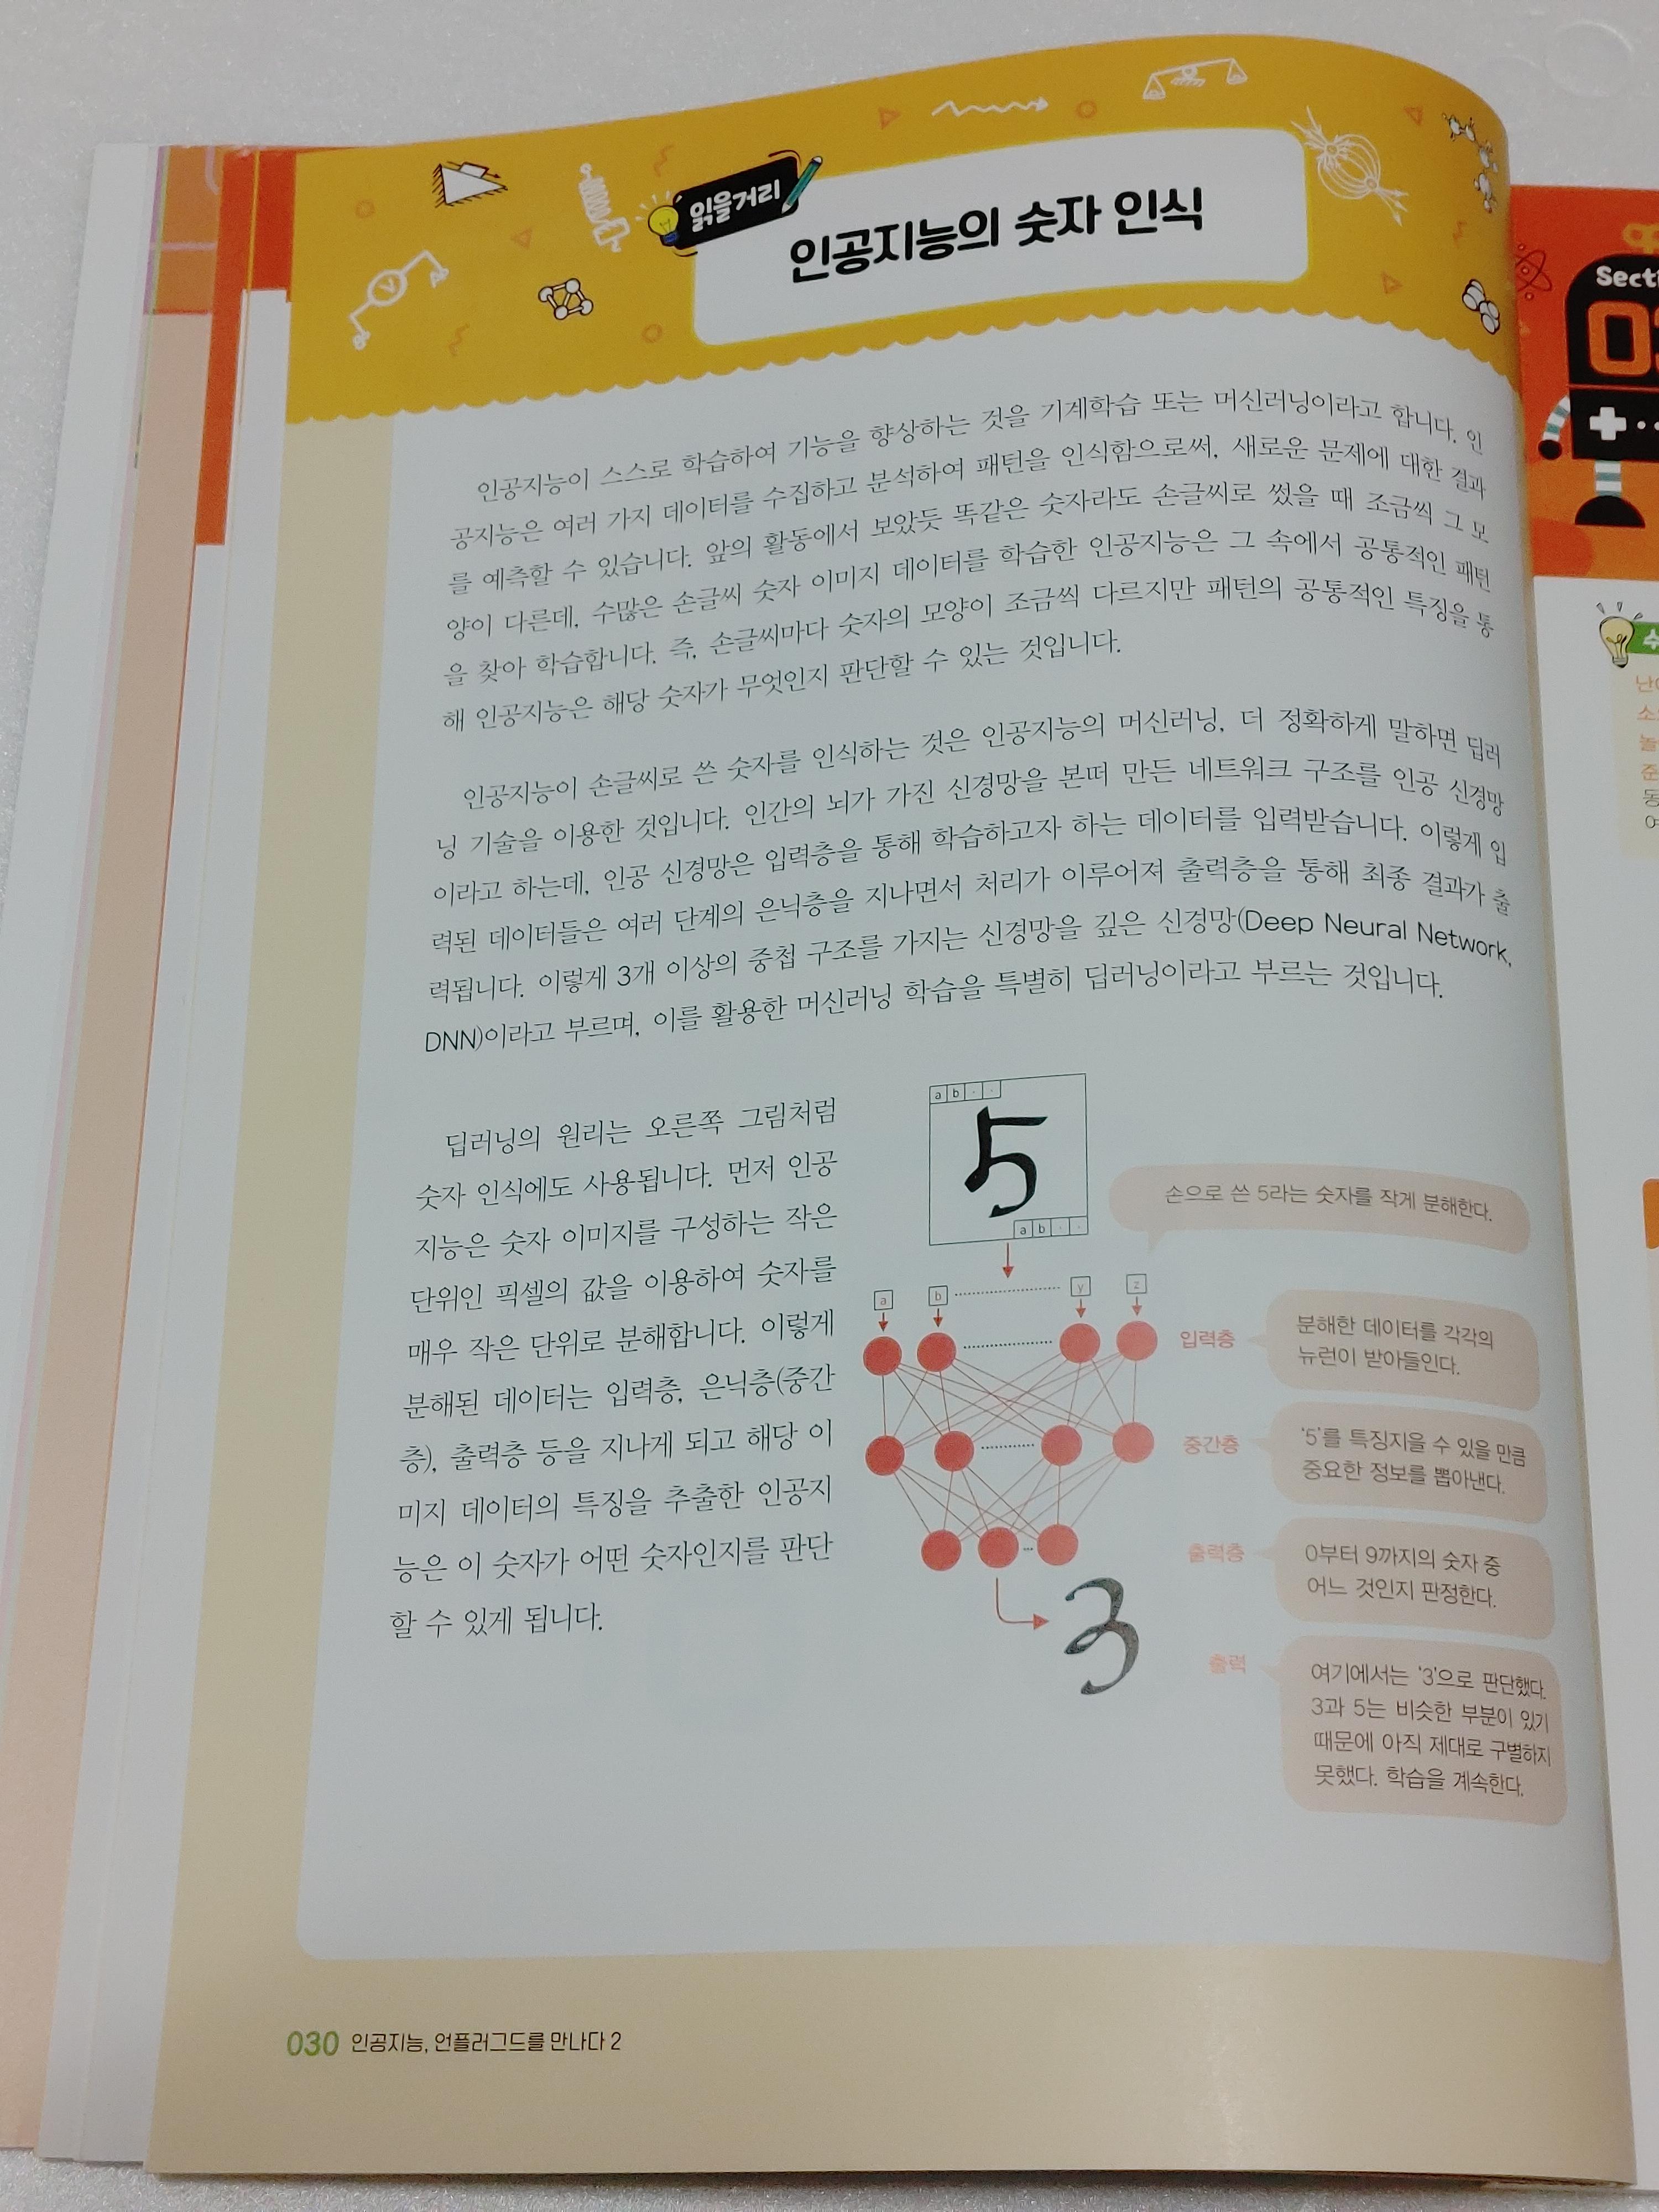 읽을거리
인공지능의 숫자 인식
인공지능이 스스로 학습하여 기능을 향상하는 것을 기계학습 또는 머신러닝이라고 합니다. 인
공지능은 여러 가지 데이터를 수집하고 분석하여 패턴을 인식함으로써, 새로운 문제에 대한 결과
를 예측할 수 있습니다. 앞의 활동에서 보았듯 똑같은 숫자라도 손글씨로 썼을 때 조금씩 그 모
양이 다른데, 수많은 손글씨 숫자 이미지 데이터를 학습한 인공지능은 그 속에서 공통적인 패턴
을 찾아 학습합니다. 즉, 손글씨마다 숫자의 모양이 조금씩 다르지만 패턴의 공통적인 특징을 통
해 인공지능은 해당 숫자가 무엇인지 판단할 수 있는 것입니다.
인공지능이 손글씨로 쓴 숫자를 인식하는 것은 인공지능의 머신러닝, 더 정확하게 말하면 딥러
닝 기술을 이용한 것입니다. 인간의 뇌가 가진 신경망을 본떠 만든 네트워크 구조를 인공 신경망
이라고 하는데, 인공 신경망은 입력층을 통해 학습하고자 하는 데이터를 입력받습니다. 이렇게 입
력된 데이터들은 여러 단계의 은닉층을 지나면서 처리가 이루어져 출력층을 통해 최종 결과가 출
력됩니다. 이렇게 3개 이상의 중첩 구조를 가지는 신경망을 깊은 신경망(Deep Neural Network,
DNN)이라고 부르며, 이를 활용한 머신러닝 학습을 특별히 딥러닝이라고 부르는 것입니다.
딥러닝의 원리는 오른쪽 그림처럼
숫자 인식에도 사용됩니다. 먼저 인공
지능은 숫자 이미지를 구성하는 작은
단위인 픽셀의 값을 이용하여 숫자를
매우 작은 단위로 분해합니다. 이렇게
분해된 데이터는 입력층, 은닉층(중간
층), 출력층 등을 지나게 되고 해당 이
미지 데이터의 특징을 추출한 인공지
능은 이 숫자가 어떤 숫자인지를 판단
할 수 있게 됩니다.
a b · ·
5
a b · ·
손으로 쓴 5라는 숫자를 작게 분해한다.
a b y z
입력층
분해한 데이터를 각각의
뉴런이 받아들인다.
중간층
'5'를 특징지을 수 있을 만큼
중요한 정보를 뽑아낸다.
출력층
0부터 9까지의 숫자 중
어느 것인지 판정한다.
3
출력
여기에서는 '3'으로 판단했다.
3과 5는 비슷한 부분이 있기
때문에 아직 제대로 구별하지
못했다. 학습을 계속한다.
030 인공지능, 언플러그드를 만나다 2